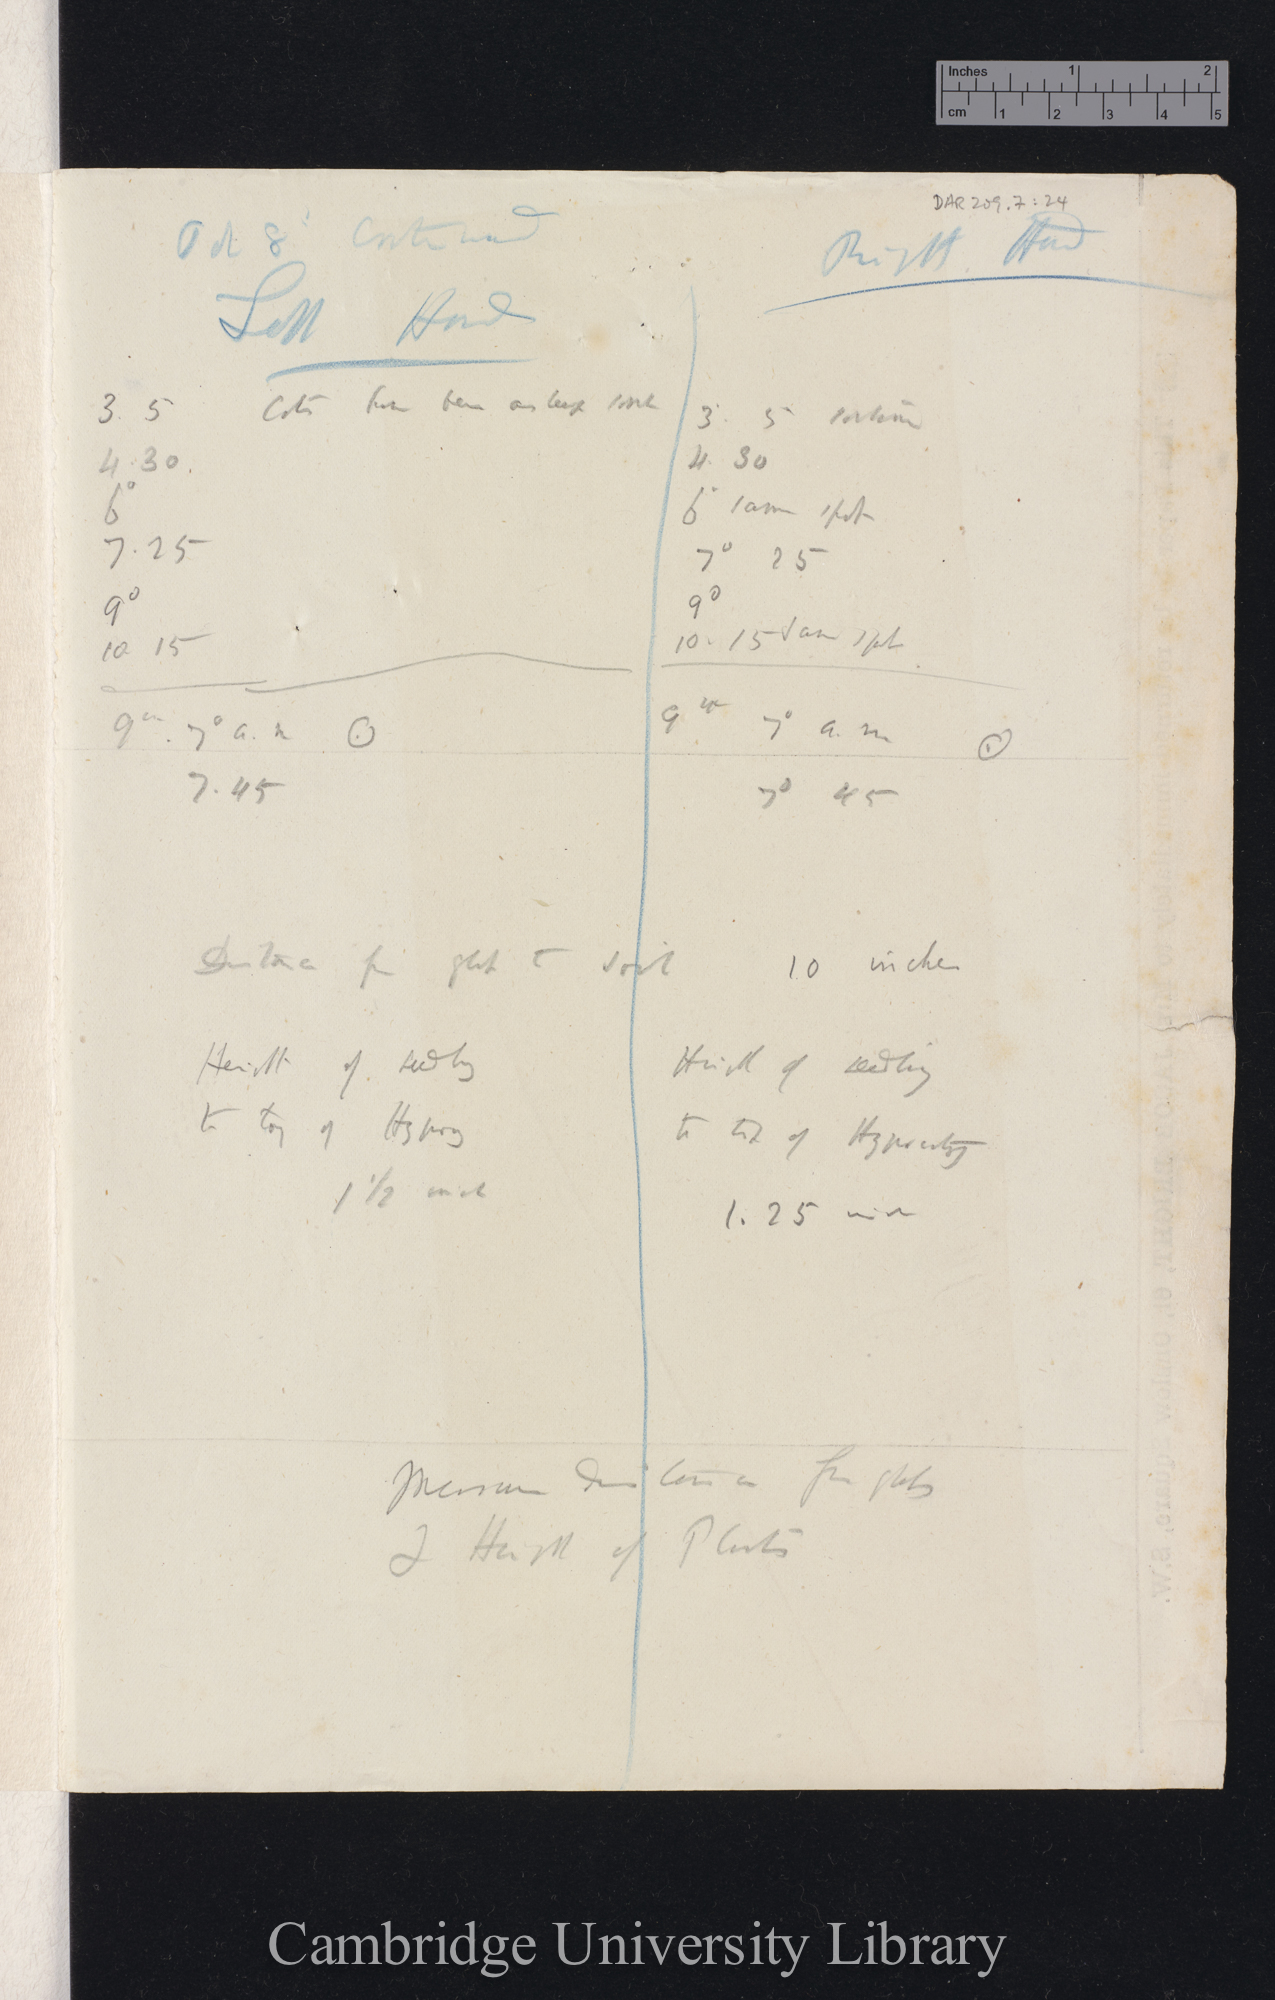 Inches 1 2
cm 1 2 3 4 5
DAR 209.7:24
Oct 8' Continued
Left Hand
3. 5 Cots have been asleep some
4.30.
6°
7.25
9°
10 15
9th. 7° a.m ⊙
7.45
Right Hand
3. 5
4. 30
6° same spot
7° 25
9°
10. 15 same spot
9th 7° a.m ⊙
7° 45
Distance from glass to soil 10 inches
Height of seedling
to top of
1 1/2 inch
Height of seedling
to top of Hypocotyl
1.25 inch
Measure Distance from glass
& Height of Plants
Cambridge University Library